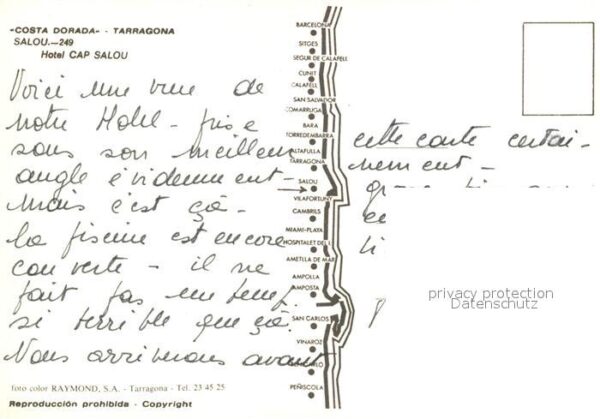 «COSTA DORADA» - TARRAGONA
SALOU.—249
Hotel CAP SALOU
Voici une vue de
notre Hotel - prise
sous son meilleur
angle évidemment -
mais c'est çà -
la piscine est encore
couverte - il ne
fait pas un temps
si terrible que çà.
Nous arriverons avant
cette carte certai-
nement -
BARCELONA
SITGES
SEGUR DE CALAFELL
CUNIT
CALAFELL
SAN SALVADOR
COMARRUGA
BARA
TORREDEMBARRA
ALTAFULLA
TARRAGONA
SALOU
VILAFORTUNY
CAMBRILS
MIAMI-PLAYA
HOSPITALET DEL I.
AMETLLA DE MAR
AMPOLLA
AMPOSTA
SAN CARLOS
VINAROZ
PEÑISCOLA
privacy protection
Datenschutz
foto color RAYMOND, S.A. - Tarragona - Tel. 23 45 25
Reproducción prohibida - Copyright